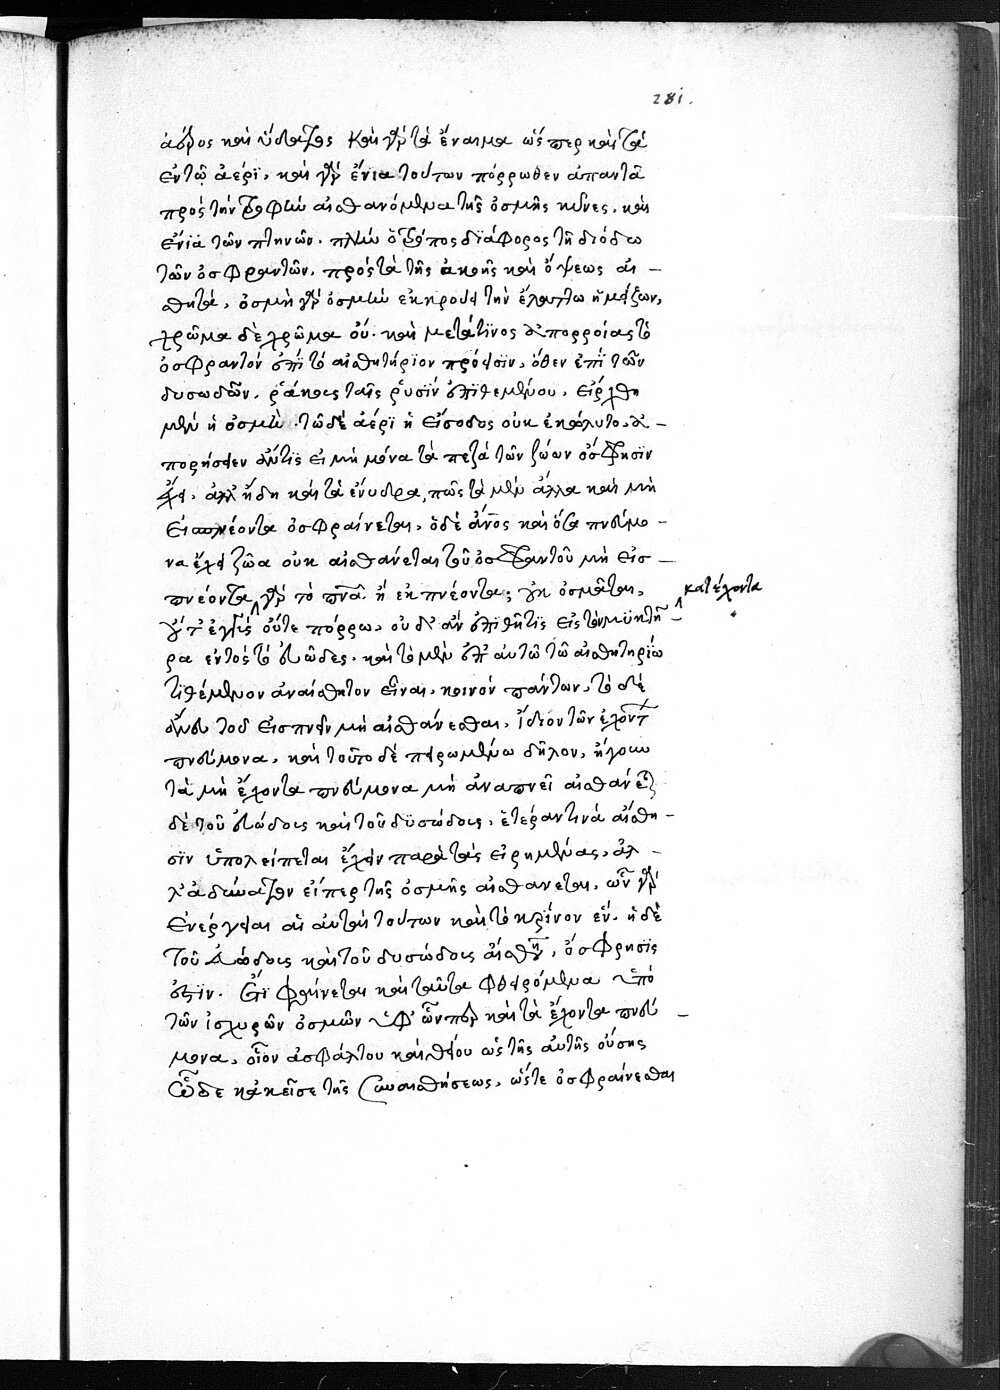 281.
ἀέρος καὶ ὕδατος καὶ γὰρ τὰ ἔναιμα ὥσπερ καὶ τὰ
ἐν τῷ ἀέρϊ, καὶ γὰρ ἔνια τούτων πόρρωθεν ἀπαντᾶ
πρὸς τὴν τροφὴν αἰσθανόμενα τῆς ὀσμῆς κύνες, καὶ
ἔνϊα τῶν πτηνῶν. πλὴν ὁ τρόπος διάφορος τῆ διόδω
τῶν ὀσφραντῶν, πρὸς τὰ τῆς ἀκοῆς καὶ ὄψεως αἰ-
θητὰ, ὀσμὴ γὰρ ὀσμὴν ἐκκρούει τὴν ἐλάττω ἡ μείζων,
χρῶμα δὲ χρῶμα οὔ. καὶ μετά τϊνος ἀπορροίας τὸ
ὀσφραντὸν ἐπὶ τὸ αἰσθητήρϊον πρόεισϊν, ὅθεν ἐπὶ τῶν
δυσωδῶν, ῥάκους ταῖς ῥϊσὶν ἐπϊθεμένου, εἴρχθη
μὲν ἡ ὀσμὴ. τῶ δὲ ἀέρϊ ἡ εἴσοδος οὐκ ἐκώλυτο. ἀ-
πορήσειεν ἄν τϊς εἰ μὴ μόνα τὰ πεζὰ τῶν ζώων ὄσφρησϊν
ἔχει, ἀλλ' ἤδη καὶ τὰ ἔνυδρα, πῶς τὰ μὲν ἄλλα καὶ μὴ
εἰσπνέοντα ὀσφραίνεται, ὁ δὲ ἄνος καὶ ὅσα πνεύμο-
να ἔχει ζῶα οὐκ αἰσθάνεται τοῦ ὀσφραντοῦ μὴ εἰσ-
πνέοντα, γὰρ τὸ πνᾶ. ἢ ἐκπνέοντα; οὐκ ὀσμᾶται, κατέχοντα
οὔτ' ἐγγὺς οὔτε πόρρω, οὐδ' ἂν ἐπϊθῆ τϊς εἰς τὸν μϋκτῆ-
ρα ἐντὸς τὸ εὐῶδες. καὶ τὸ μὲν ἐπ' αὐτῶ τῶ αἰσθητηρίω
τϊθέμενον ἀναίσθητον εἶναι, κοινὸν πάντων, τὸ δὲ
ἄνευ τοῦ εἰσπνεῖν μὴ αἰσθάνεσθαι, ἴδϊον τῶν ἐχόντ
πνεύμονα, καὶ τοῦτο δὲ πειρωμένω δῆλον, ἤγουν
τὰ μὴ ἔχοντα πνεύμονα μὴ ἀναπνεῖ αἰσθάνετ
δὲ τοῦ εὐώδους καὶ τοῦ δϋσώδους, ἑτέραν τινὰ αἴσθη-
σϊν ὑπολείπεται ἔχειν παρὰ τὰς εἰρημένας, ἀλ-
λ' ἀδύνατον εἴπερ τῆς ὀσμῆς αἰσθάνεται, ὧν γὰρ
ἐνέργειαι αἱ αὐταὶ τούτων καὶ τὸ κρῖνον ἕν. ἡ δὲ
τοῦ εὐώδους καὶ τοῦ δυσώδους αἴσθη, ὄσφρησϊς
ἐστϊν. ἔτϊ φαίνεται καὶ ταῦτα φθειρόμενα ὑπὸ
τῶν ἰσχυρῶν ὀσμῶν ὑφ' ὧνπερ καὶ τὰ ἔχοντα πνεύ-
μονα, οἷον ἀσφάλτου καὶ θείου ὡς τῆς αὐτῆς οὔσης
ὧδε κἀκεῖσε τῆς συναισθήσεως, ὥστε ὀσφραίνεσθαι